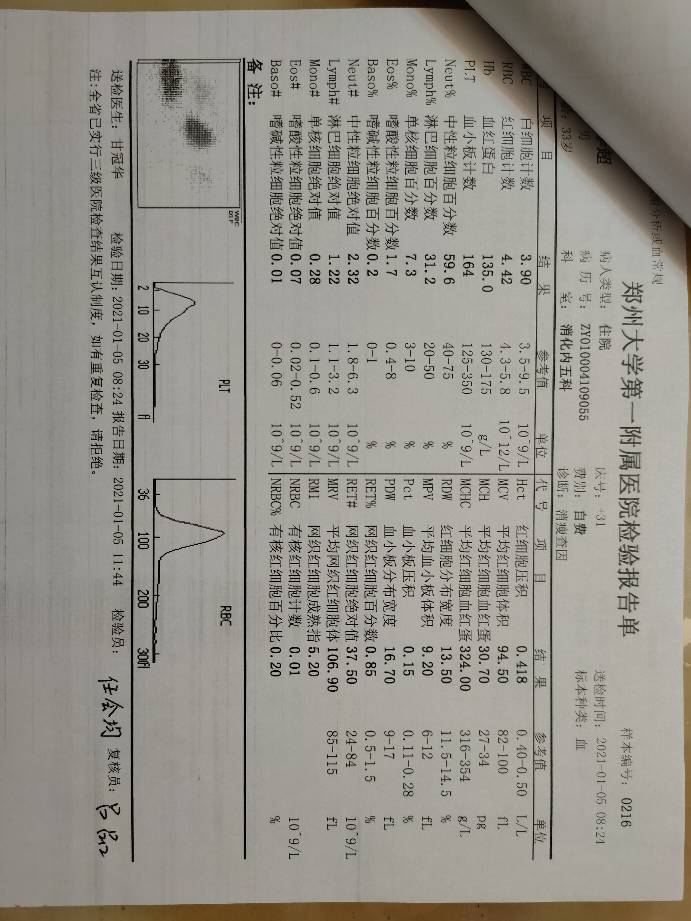 郑州大学第一附属医院检验报告单
血常规 样本编号: 0216
超 病人类型: 住院 床号: +31 送检时间: 2021-01-05 08:24
病历号: ZY010004109055 费别: 自费 标本种类: 血
33岁 科 室: 消化内五科 诊断: 消瘦查因
项 目 结 果 参考值 单位 代 号 项 目 结 果 参考值 单位
WBC 白细胞计数 3.90 3.5-9.5 10^9/L Hct 红细胞压积 0.418 0.40-0.50 L/L
RBC 红细胞计数 4.42 4.3-5.8 10^12/L MCV 平均红细胞体积 94.50 82-100 fL
Hb 血红蛋白 135.0 130-175 g/L MCH 平均红细胞血红蛋 30.70 27-34 pg
PLT 血小板计数 164 125-350 10^9/L MCHC 平均红细胞血红蛋 324.00 316-354 g/L
Neut% 中性粒细胞百分数 59.6 40-75 % RDW 红细胞分布宽度 13.50 11.5-14.5 %
Lymph% 淋巴细胞百分数 31.2 20-50 % MPV 平均血小板体积 9.20 6-12 fL
Mono% 单核细胞百分数 7.3 3-10 % Pct 血小板压积 0.15 0.11-0.28 %
Eos% 嗜酸性粒细胞百分数 1.7 0.4-8 % PDW 血小板分布宽度 16.70 9-17 fL
Baso% 嗜碱性粒细胞百分数 0.2 0-1 % RET% 网织红细胞百分数 0.85 0.5-1.5 %
Neut# 中性粒细胞绝对值 2.32 1.8-6.3 10^9/L RET# 网织红细胞绝对值 37.50 24-84 10^9/L
Lymph# 淋巴细胞绝对值 1.22 1.1-3.2 10^9/L MRV 平均网织红细胞体 106.90 85-115 fL
Mono# 单核细胞绝对值 0.28 0.1-0.6 10^9/L RMI 网织红细胞成熟指 5.20
Eos# 嗜酸性粒细胞绝对值 0.07 0.02-0.52 10^9/L NRBC 有核红细胞计数 0.01 10^9/L
Baso# 嗜碱性粒细胞绝对值 0.01 0-0.06 10^9/L NRBC% 有核红细胞百分比 0.20 %
备 注:
WBC
DIFF
PLT RBC
2 10 20 30 fl 36 100 200 300fl
送检医生: 甘冠华 检验日期: 2021-01-05 08:24 报告日期: 2021-01-05 11:44 检验员: 任会均 复核员:
注:全省已实行三级医院检查结果互认制度, 如有重复检查, 请拒绝。